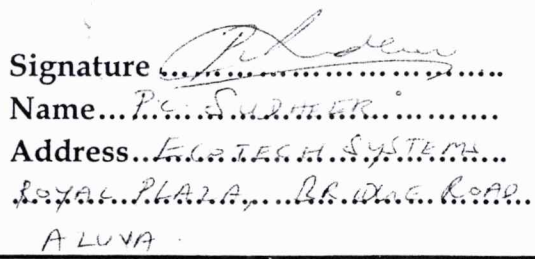 Signature
Name... P.C. SUDHEER
Address.. ECOTECH SYSTEMS
ROYAL PLAZA, BRIDGE ROAD
ALUVA.